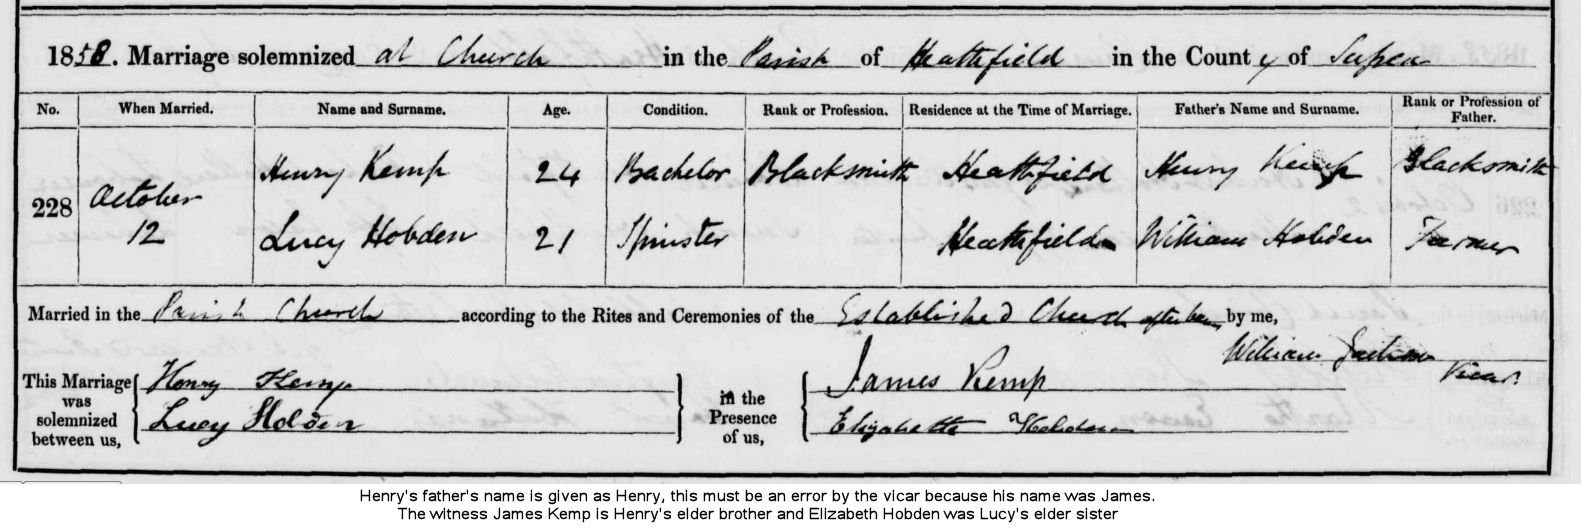 1858. Marriage solemnized at Church in the Parish of Heathfield in the County of Sussex
No. When Married. Name and Surname. Age. Condition. Rank or Profession. Residence at the Time of Marriage. Father's Name and Surname. Rank or Profession of Father.
228 October 12
Henry Kemp 24 Bachelor Blacksmith Heathfield Henry Kemp Blacksmith
Lucy Hobden 21 Spinster Heathfield William Hobden Farmer
Married in the Parish Church according to the Rites and Ceremonies of the Established Church after by me,
William Vicar
This Marriage was solemnized between us,
Henry Kemp
Lucy Hobden
in the Presence of us,
James Kemp
Elizabeth Hobden
Henry's father's name is given as Henry, this must be an error by the vicar because his name was James.
The witness James Kemp is Henry's elder brother and Elizabeth Hobden was Lucy's elder sister